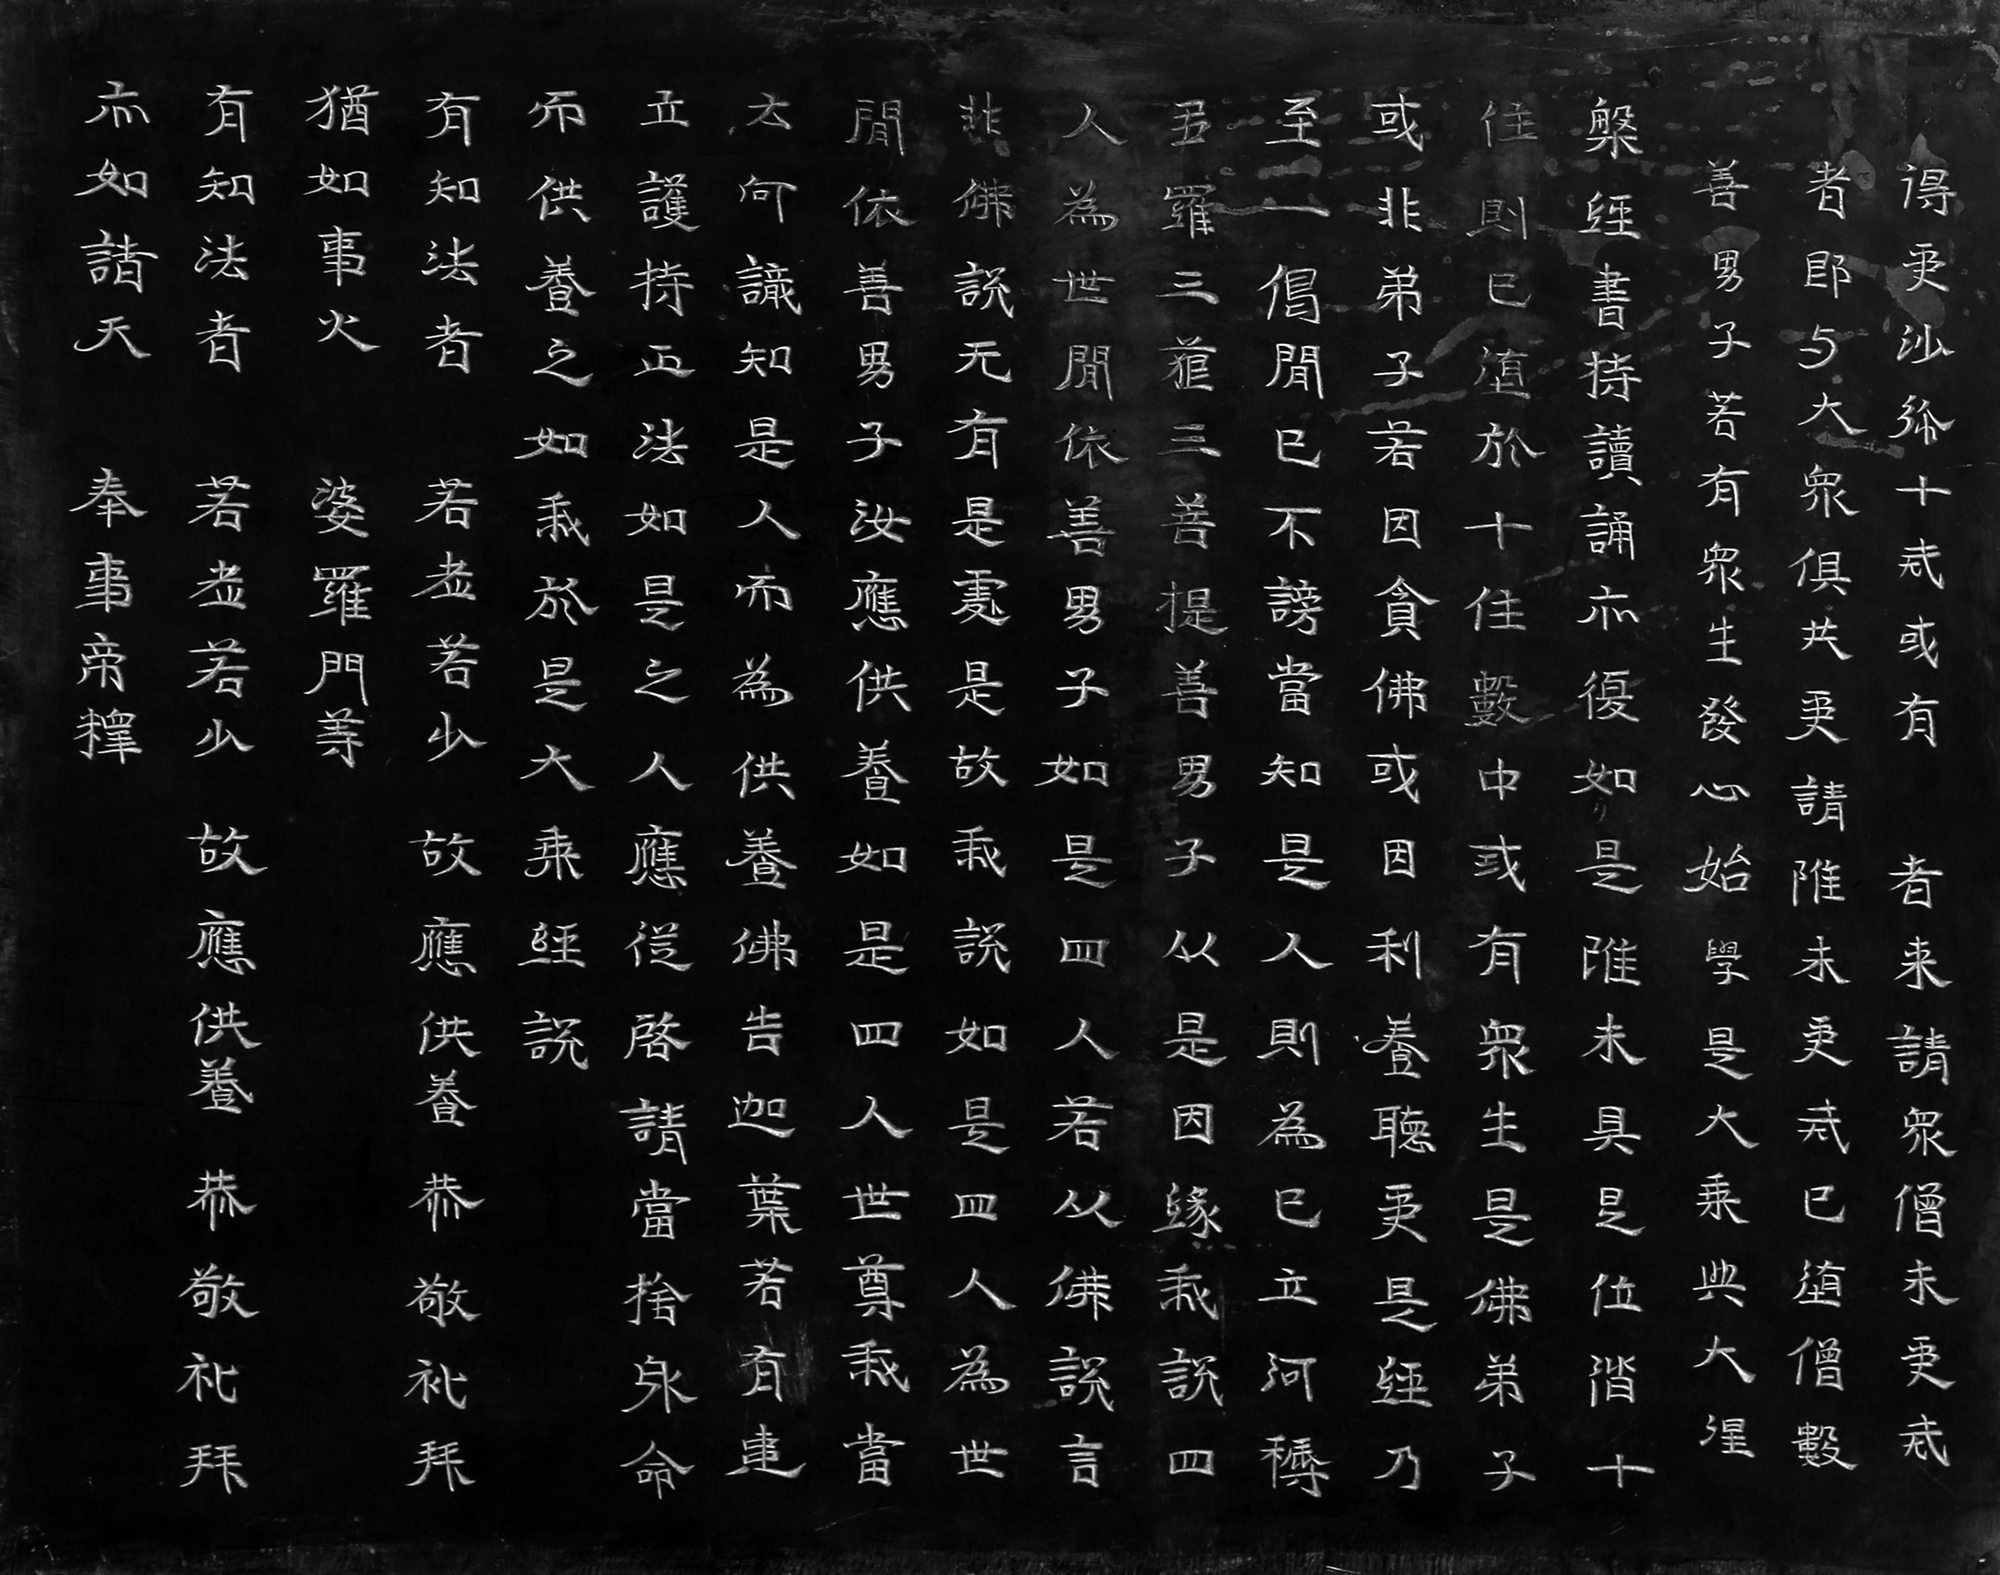 得受沙弥十戒或有 者来請衆僧未受戒
者即与大衆俱共受請雖未受戒已堕僧數
善男子若有衆生發心始學是大乘典大涅
槃經書持讀誦亦復如是雖未具足位階十
住則已堕於十住數中或有衆生是佛弟子
或非弟子若因貪佛或因利養聽受是經乃
至一偈聞已不謗當知是人則為已立河耨
羅三藐三菩提善男子以是因緣我說四
人為世間依善男子如是四人若以佛說言
非佛說无有是處是故我說如是四人為世
間依善男子汝應供養如是四人世尊我當
云何識知是人而為供養佛告迦葉若有建
立護持正法如是之人應從啓請當捨身命
而供養之如我於是大乘經說
有知法者 若老若少 故應供養 恭敬礼拜
猶如事火 婆羅門等
有知法者 若老若少 故應供養 恭敬礼拜
亦如諸天 奉事帝釋